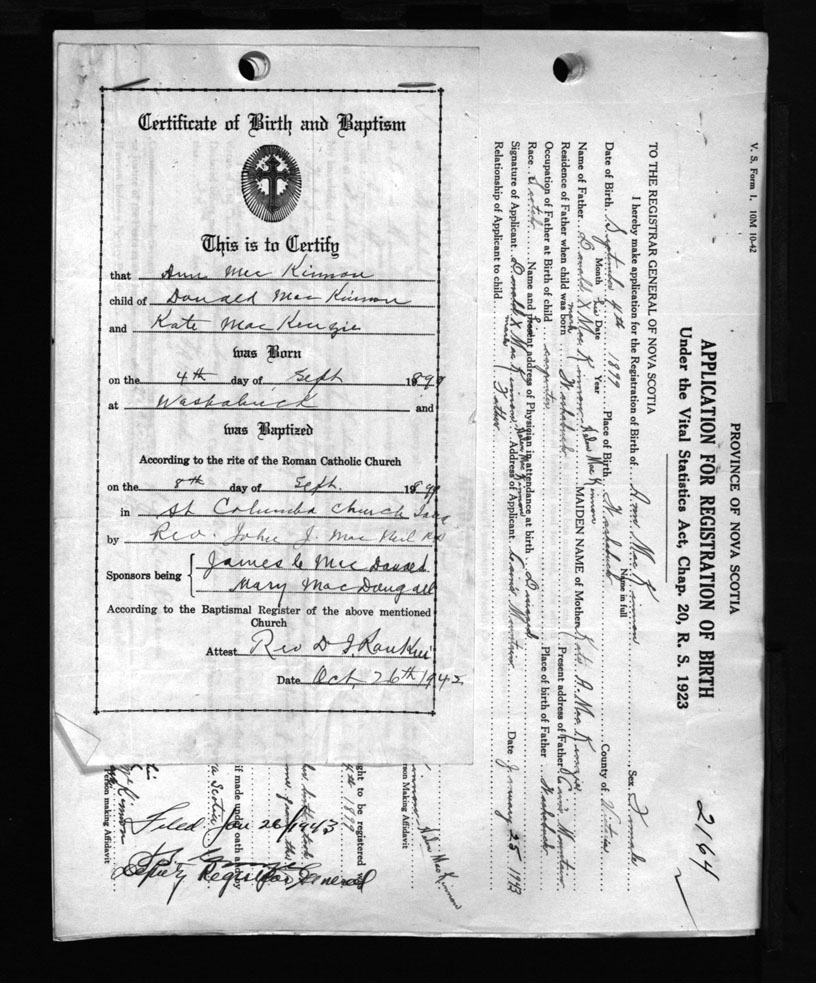 Certificate of Birth and Baptism
This is to Certify
that Ann Mac Kinnon
child of Donald Mac Kinnon
and Kate MacKenzie
was Born
on the 4th day of Sept 1899
at Washabuck and
was Baptized
According to the rite of the Roman Catholic Church
on the 8th day of Sept. 1899
in St Columba Church Iona
by Rev. John J. MacNeil
Sponsors being James C Mac Donald
Mary MacDougall
According to the Baptismal Register of the above mentioned
Church
Attest Rev D. J. Rankin
Date Oct, 26th 1942
V. S. Form 1. 10M 10-42
PROVINCE OF NOVA SCOTIA
APPLICATION FOR REGISTRATION OF BIRTH
Under the Vital Statistics Act, Chap. 20, R. S. 1923
2164
TO THE REGISTRAR GENERAL OF NOVA SCOTIA
I hereby make application for the Registration of Birth of Ann Mac Kinnon Sex Female
Name in full
Date of Birth September 4th 1899 Place of Birth Washabuck County of Victoria
Month Date Year
Name of Father Donald X Mac Kinnon MAIDEN NAME of Mother Kate A. Mac Kenzie
his mark
Residence of Father when child was born Washabuck Present address of Father Cains Mountain
Occupation of Father at Birth of child carpenter Place of birth of Father Washabuck
Race Scotch Name and address of Physician in attendance at birth
Signature of Applicant Donald X Mac Kinnon Address of Applicant Cains Mountain Date January 25 1943
mark
Relationship of Applicant to child Father
ght to be registered
4th 1899
if made under oath
a Scotia
Mac Kinnon
rson Making Affidavit
Person making Affidavit
Filed Jan 26/1943
Deputy Registrar General